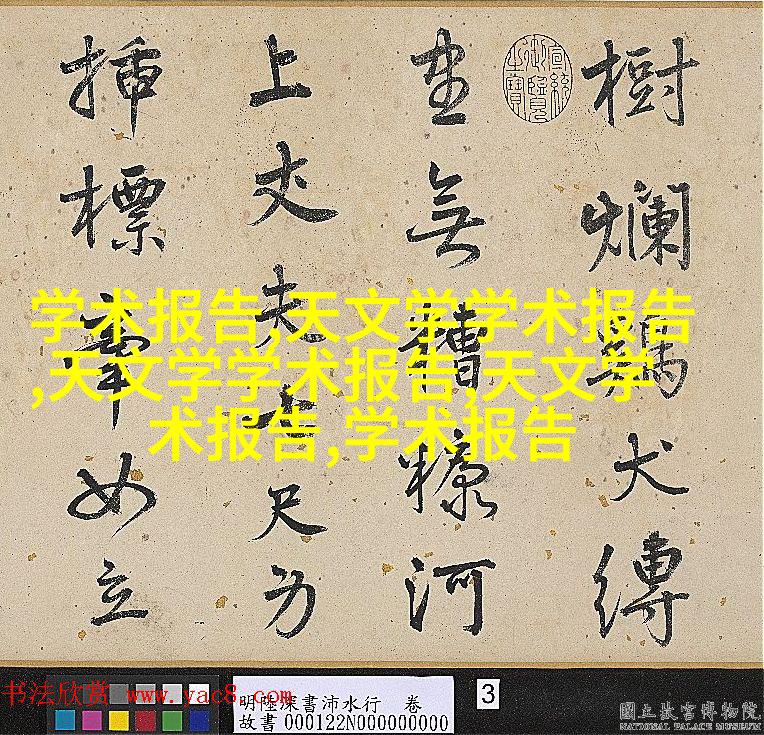 樹爛犬縛
坐無糟糠河
上丈夫尺
插標如立
宣統御覽之寶
学术报告,天文学学术报告
,天文学学术报告,天文学学
术报告,学术报告
书法欣赏 www.yac8.com
明陸深書沛水行 卷
故書 000122N000000000
3
國立故宮博物院
NATIONAL PALACE MUSEUM